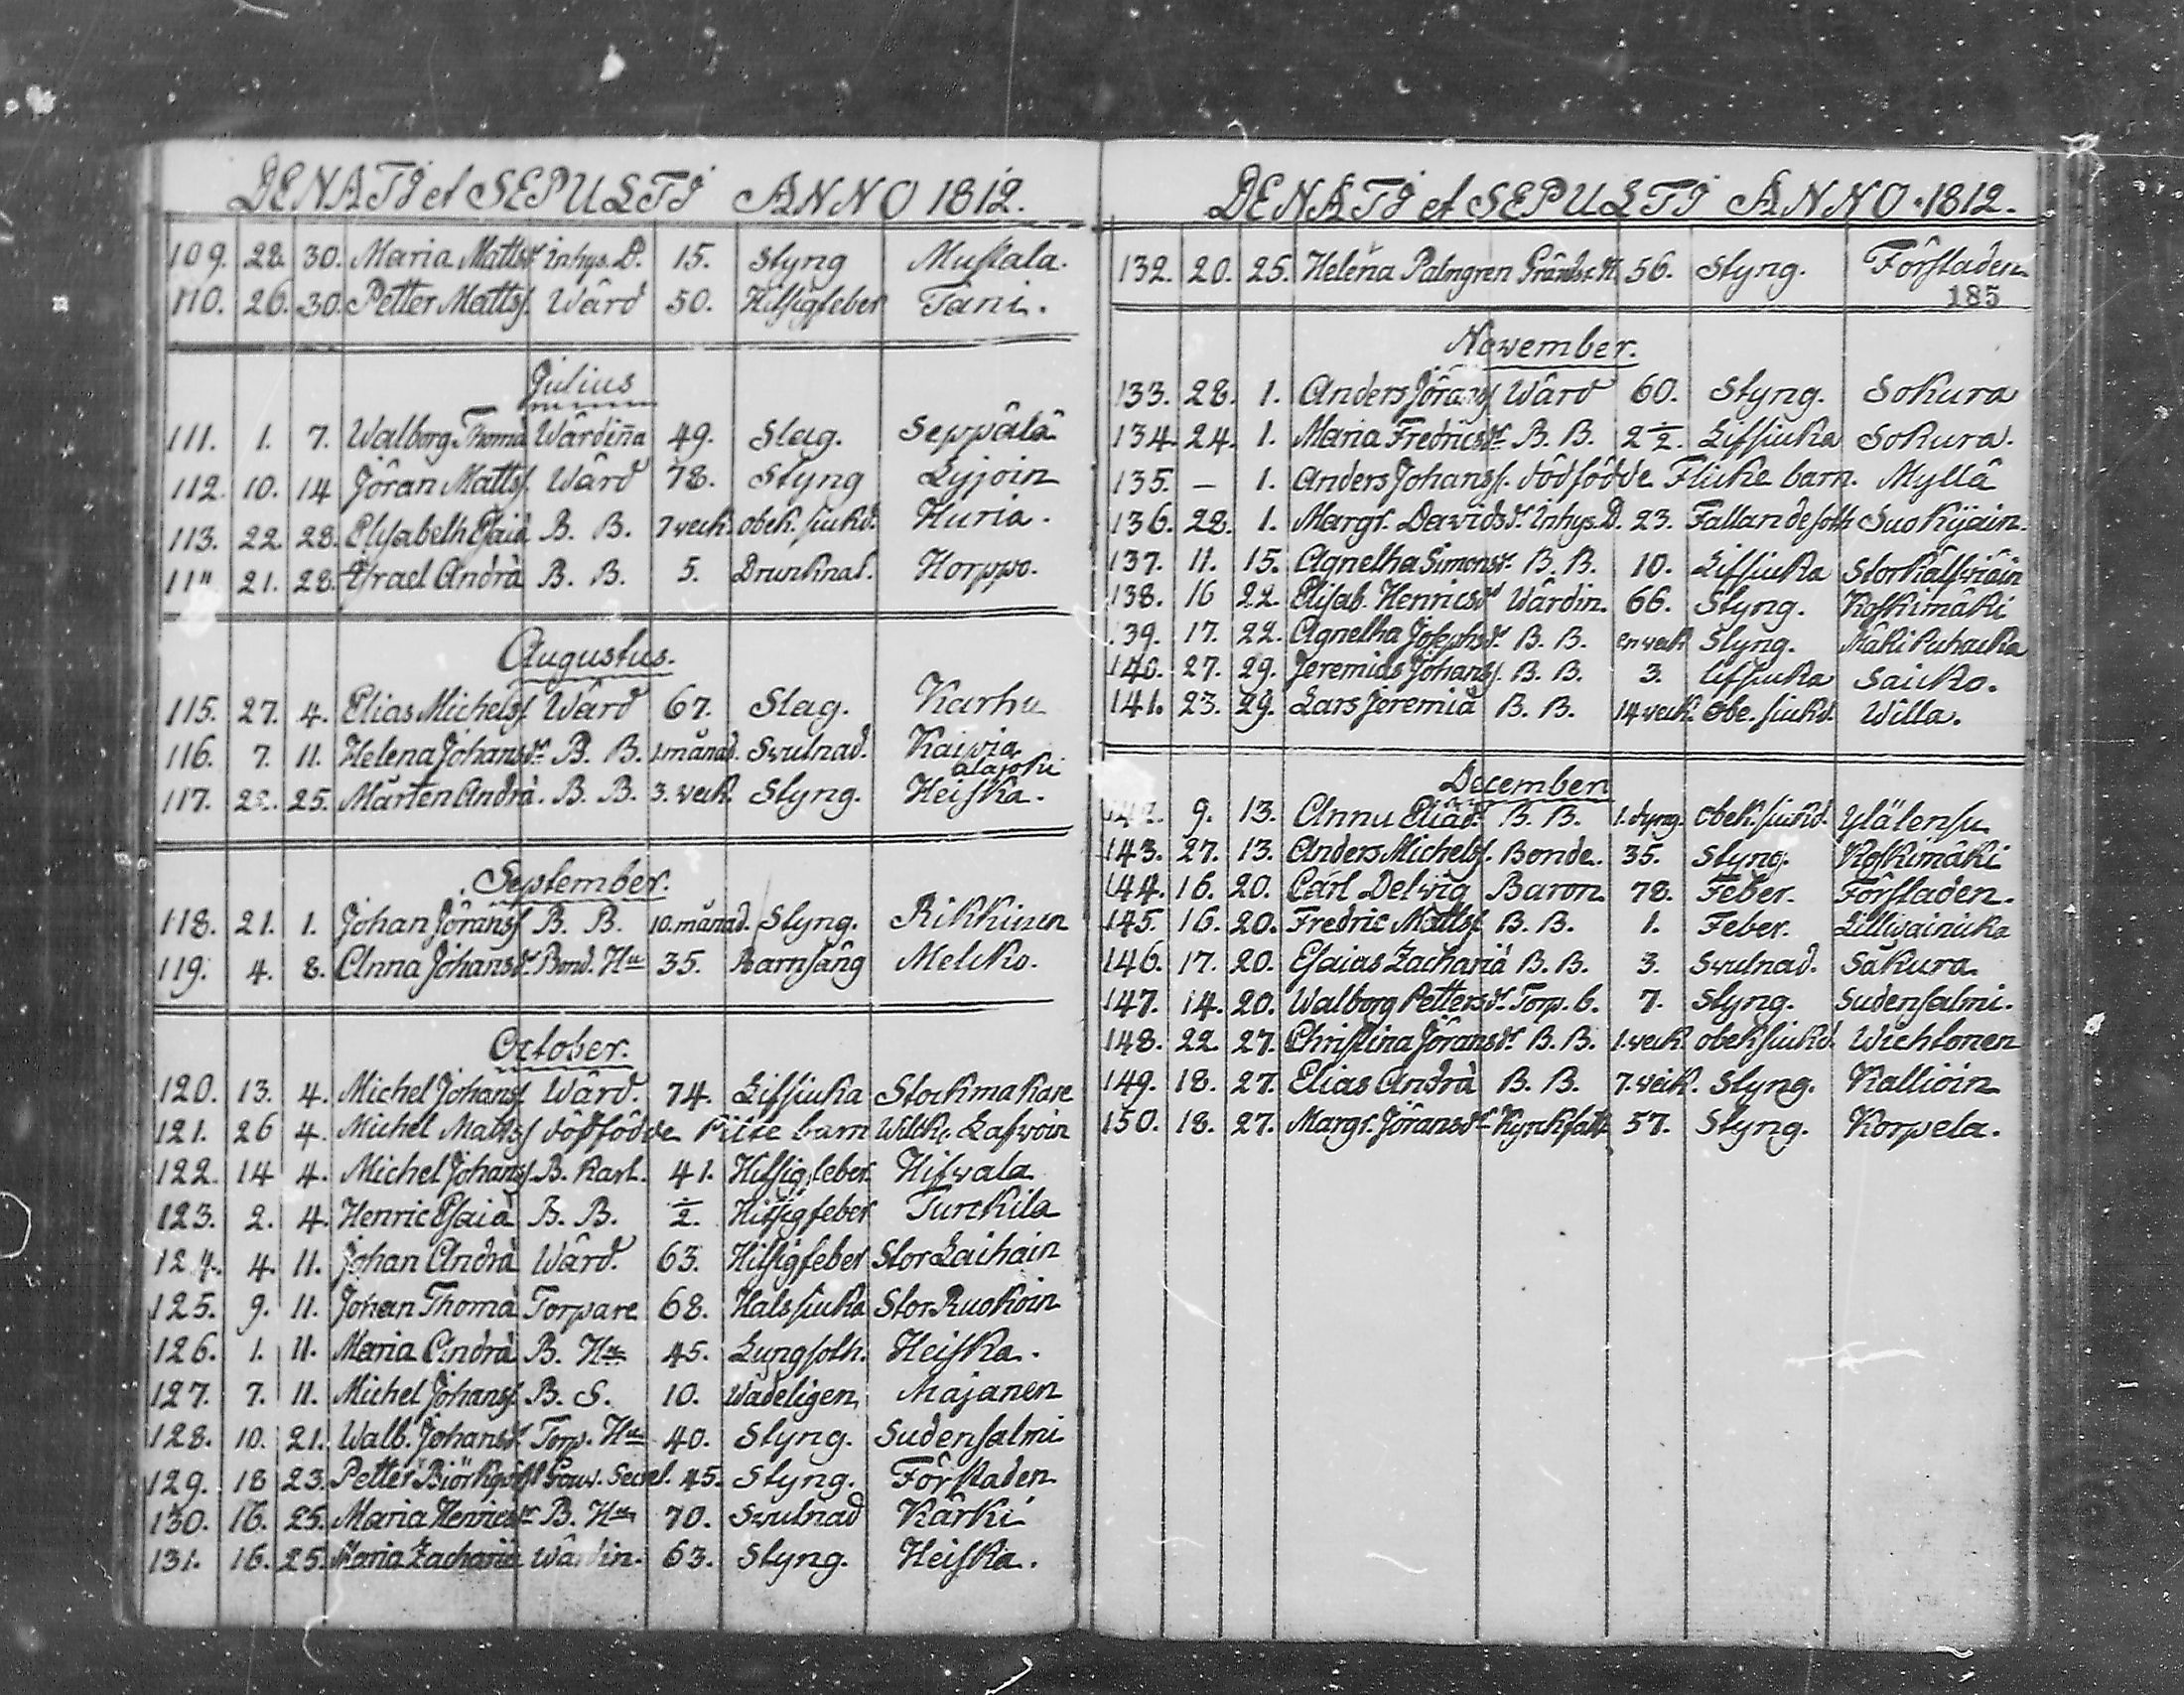 DENATI et SEPULTI ANNO 1812.
109. 28. 30. Maria Mattsdr inhys. D. 15. Styng Mustala.
110. 26. 30. Petter Mattss. Wärd 50. Hitsigfeber Tani.
Julius
111. 1. 7. Walborg Thomà Wärdiña 49. Slag. Seppälä
112. 10. 14 Jöran Mattss. Wärd 78. Styng Lyjoin
113. 22. 28. Elisabeth Esaiä B. B. 7 veck. obek. siukd. Huria.
11" 21. 28. Israel Andrà B. B. 5. Drunknat. Horppo.
Augustus.
115. 27. 4. Elias Michelss. Wärd 67. Slag. Karhu
116. 7. 11. Helena Johansdr. B. B. 1. månad. Swulnad. Kaivia
alajoki
117. 22. 25. Mårten Andrà. B. B. 3. veck. Styng. Heiska.
September.
118. 21. 1. Johan Jöranss B. B. 10. månad. Styng. Rikkinen
119. 4. 8. Anna Johansdr. Bond. Hu 35. Barnsäng Melcko.
October.
120. 13. 4. Michel Johanss. Wärd. 74. Lifsiuka Stockmakare
121. 26 4. Michel Mattss dödfödde barn Lafvoin
122. 14 4. Michel Johanss. B. Karl. 41. Hitsigfeber. Hifvala
123. 2. 4. Henric Esaiä B. B. ½. Hitsigfeber Turckila
124. 4. 11. Johan Andrà Wärd. 63. Hitsigfeber Stor Laihain
125. 9. 11. Johan Thomà Torpare 68. Halssiuka Stor Ruokoin
126. 1. 11. Maria Andrà B. Hu 45. Lungsoth. Heiska.
127. 7. 11. Michel Johanss. B. S. 10. Wådeligen Majanen
128. 10. 21. Walb. Johansdr Torp. Hu 40. Styng. Sudensalmi
129. 18 23. Petter Gouv. Secret. 45. Styng. Förstaden
130. 16. 25. Maria Henricsdr B. Hu 70. Swulnad Kärki
131. 16. 25. Maria Zachariä Wärdin. 63. Styng. Heiska.
DENATI et SEPULTI ANNO 1812.
132. 20. 25. Helena Palmgren 56. Styng. Förstaden
185
November.
133. 28. 1. Anders Jöranss Wärd 60. Styng. Sokura
134. 24. 1. Maria Fredricsdr B. B. 2 ½. Lifsiuka Sokura.
135. — 1. Anders Johanss. dödfödde Flicke barn. Myllä
136. 28. 1. Margr. Davidsdr. Inhys. D. 23. Fallandesoth Suokyjain.
137. 11. 15. Agnetha Simonsdr. B. B. 10. Lifsiuka Storkälfviäin
138. 16 22. Elisab. Henricsdr Wärdin. 66. Styng. Koskimäki
139. 17. 22. Agnetha Josephsdr B. B. en veck Styng.
140. 27. 29. Jeremias Johanss. B. B. 3. Lifsiuka Saicko.
141. 23. 29. Lars Jeremiä B. B. 14 veck. obe. siukd. Willa.
December
142. 9. 13. Anna Eliæd. B. B. 1. dygn. obek. siukd. Ylälensu
143. 27. 13. Anders Michelss. Bonde. 35. Styng. Koskimäki
144. 16. 20. Carl Delwig Baron. 78. Feber. Förstaden.
145. 16. 20. Fredric Mattss B. B. 1. Feber. Lilliwainicka
146. 17. 20. Esaias Zachariä B. B. 3. Swulnad. Sakura.
147. 14. 20. Walborg Pettersdr. Torp. b. 7. Styng. Sudensalmi.
148. 22. 27. Christina Jöransdr. B. B. 1. veck obeksiukd. Wichtonen
149. 18. 27. Elias Andrà B. B. 7. veck. Styng. Kallioin
150. 18. 27. Margr. Jöransdr 57. Styng. Korpela.